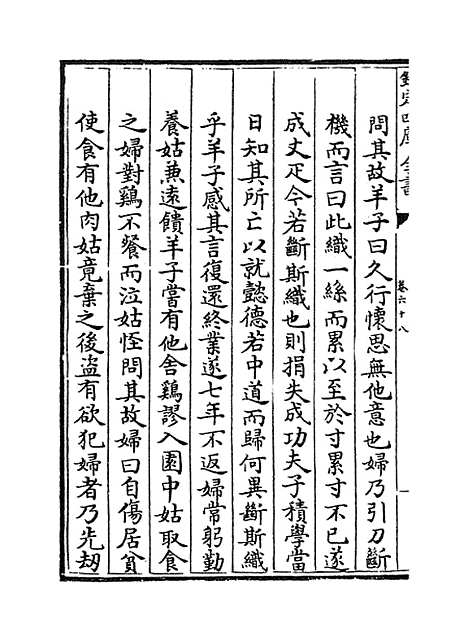 欽定四庫全書
卷六十八
一
問其故羊子曰久行懷思無他意也婦乃引刀斷
機而言曰此織一絲而累以至於寸累寸不已遂
成丈疋今若斷斯織也則捐失成功夫子積學當
日知其所亡以就懿德若中道而歸何異斷斯織
乎羊子感其言復還終業遂七年不返婦常躬勤
養姑兼逺饋羊子嘗有他舎鷄謬入園中姑取食
之婦對鷄不餐而泣姑怪問其故婦曰自傷居貧
使食有他肉姑竟棄之後盗有欲犯婦者乃先刼